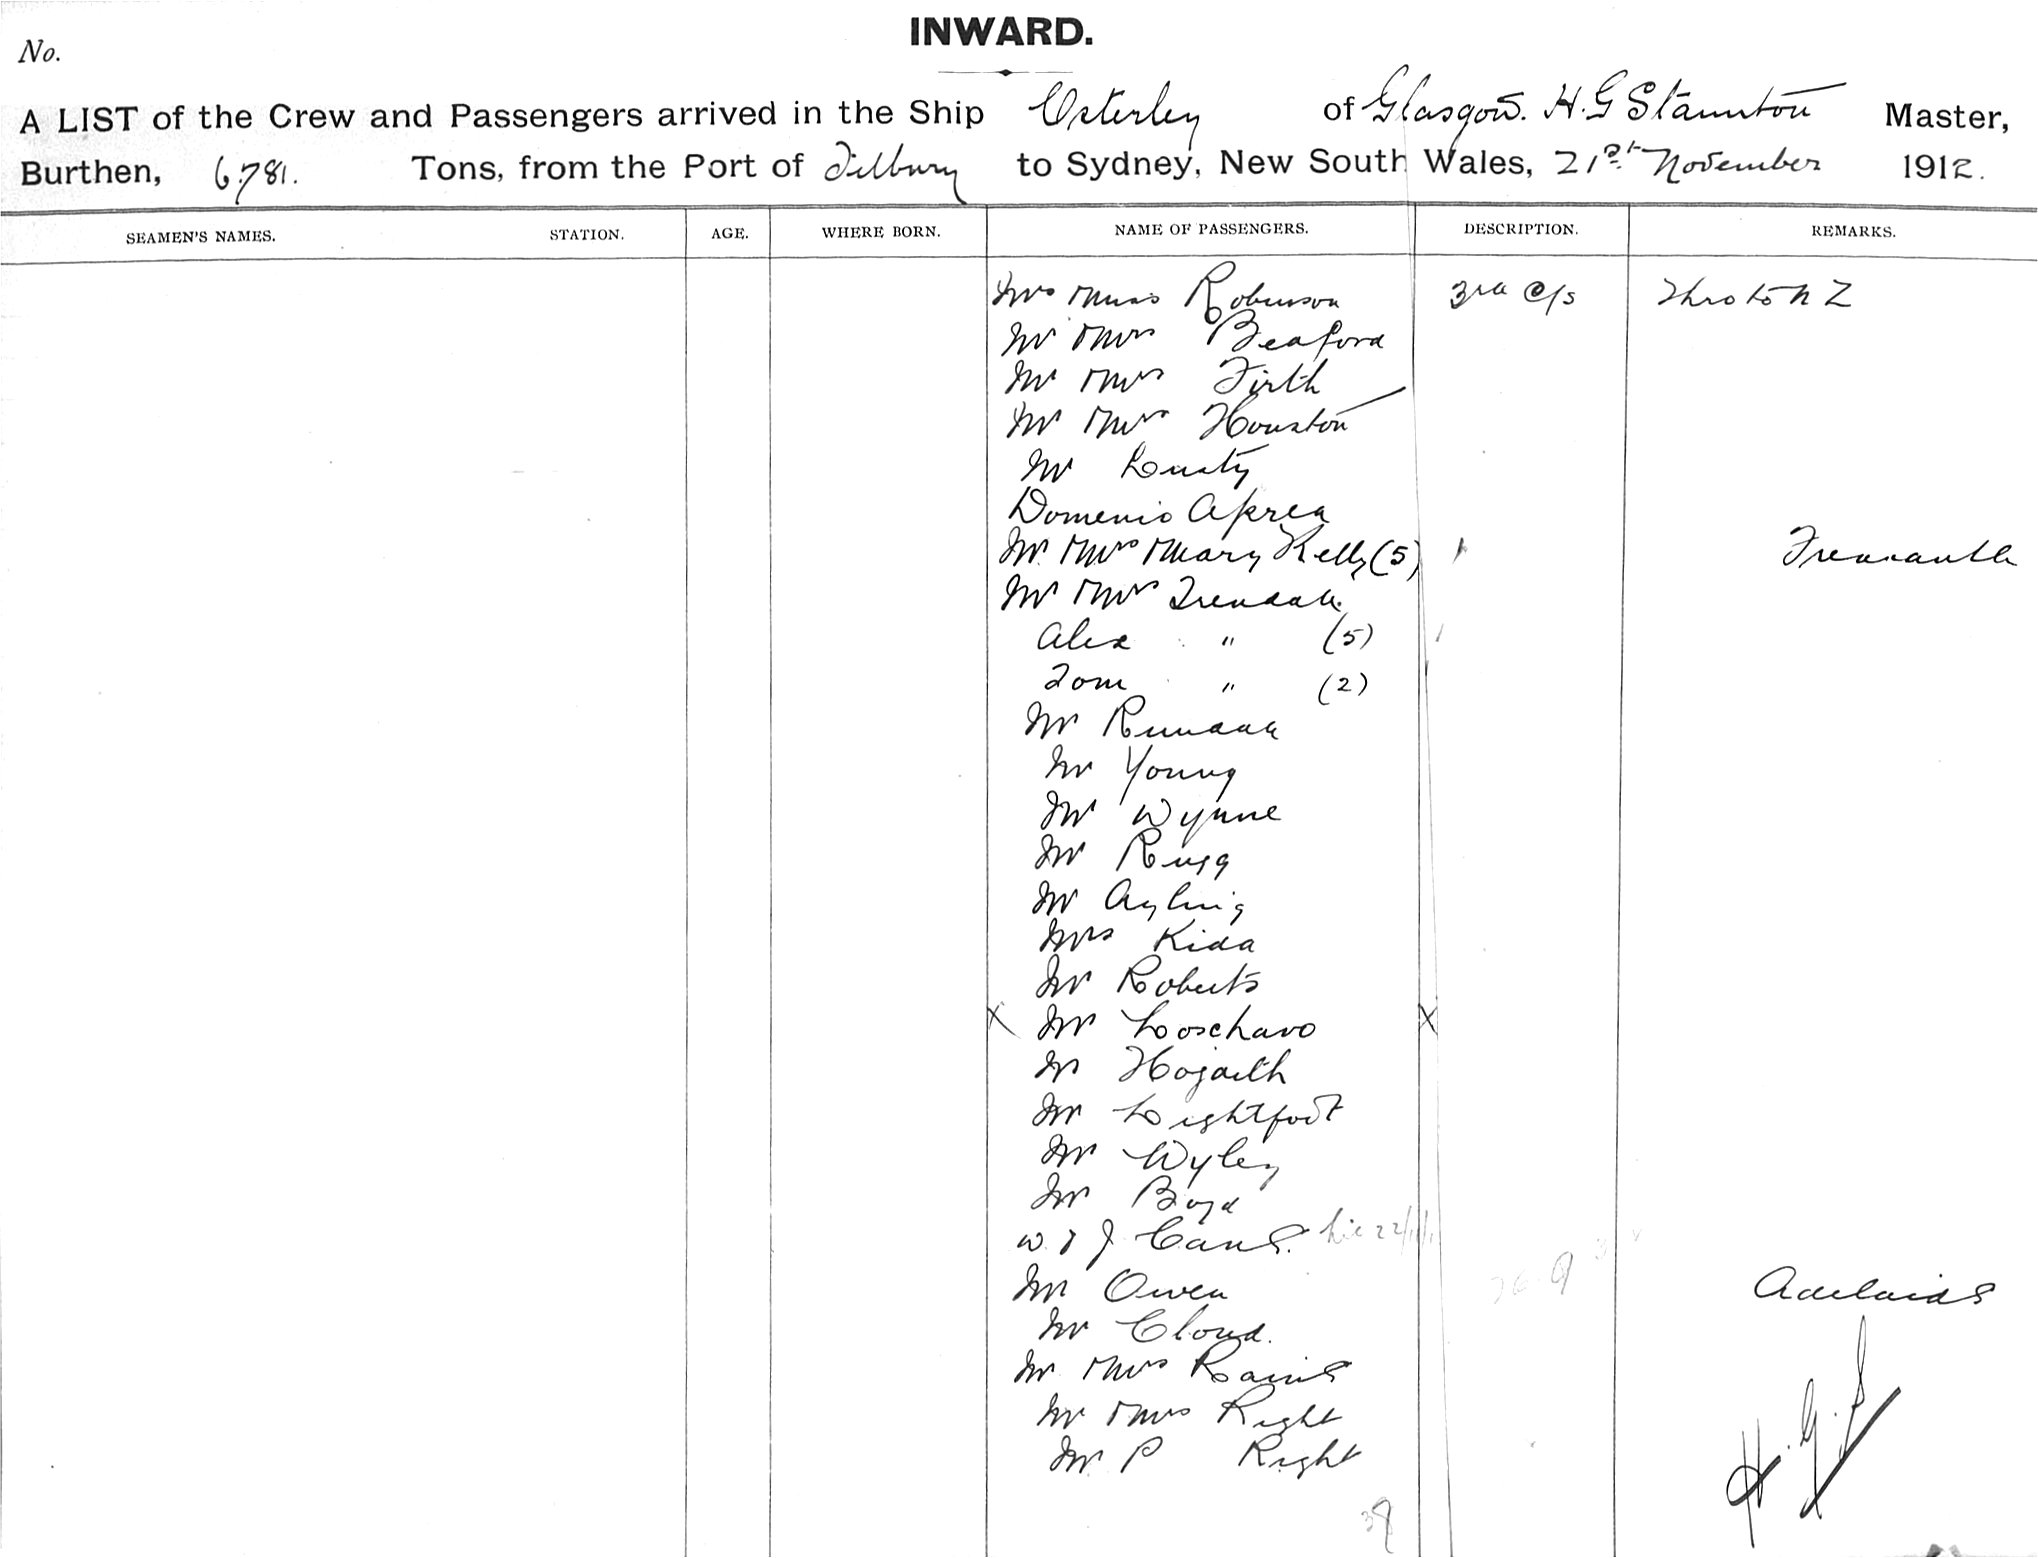 INWARD.
No.
A LIST of the Crew and Passengers arrived in the Ship Osterley of Glasgow. H. G Staunton Master,
Burthen, 6,781. Tons, from the Port of Tilbury to Sydney, New South Wales, 21st November 1912.
SEAMEN'S NAMES. STATION. AGE. WHERE BORN. NAME OF PASSENGERS. DESCRIPTION. REMARKS.
Mrs Miss Robinson 3rd c/s Thro to N Z
Mr Mrs Beaford
Mr Mrs Firth
Mr Mrs Houston
Mr Lusty
Domenio Aprea
Mr Mrs Mary Kelly (5) Fremantle
Mr Mrs Trendall.
Alex " (5)
Tom " (2)
Mr Rundall
Mr Young
Mr Wynne
Mr Rugg
Mr Ayling
Mrs Kidd
Mr Roberts
X Mr Loschavo X
Mr Hogarth
Mr Lightfoot
Mr Wyley
Mr Boyd
W & J Cane. 22/11/1
Mr Owen Adelaide
Mr Cloud.
Mr Mrs Laine
Mr Mrs Right
Mr P Right
H. G. S
39